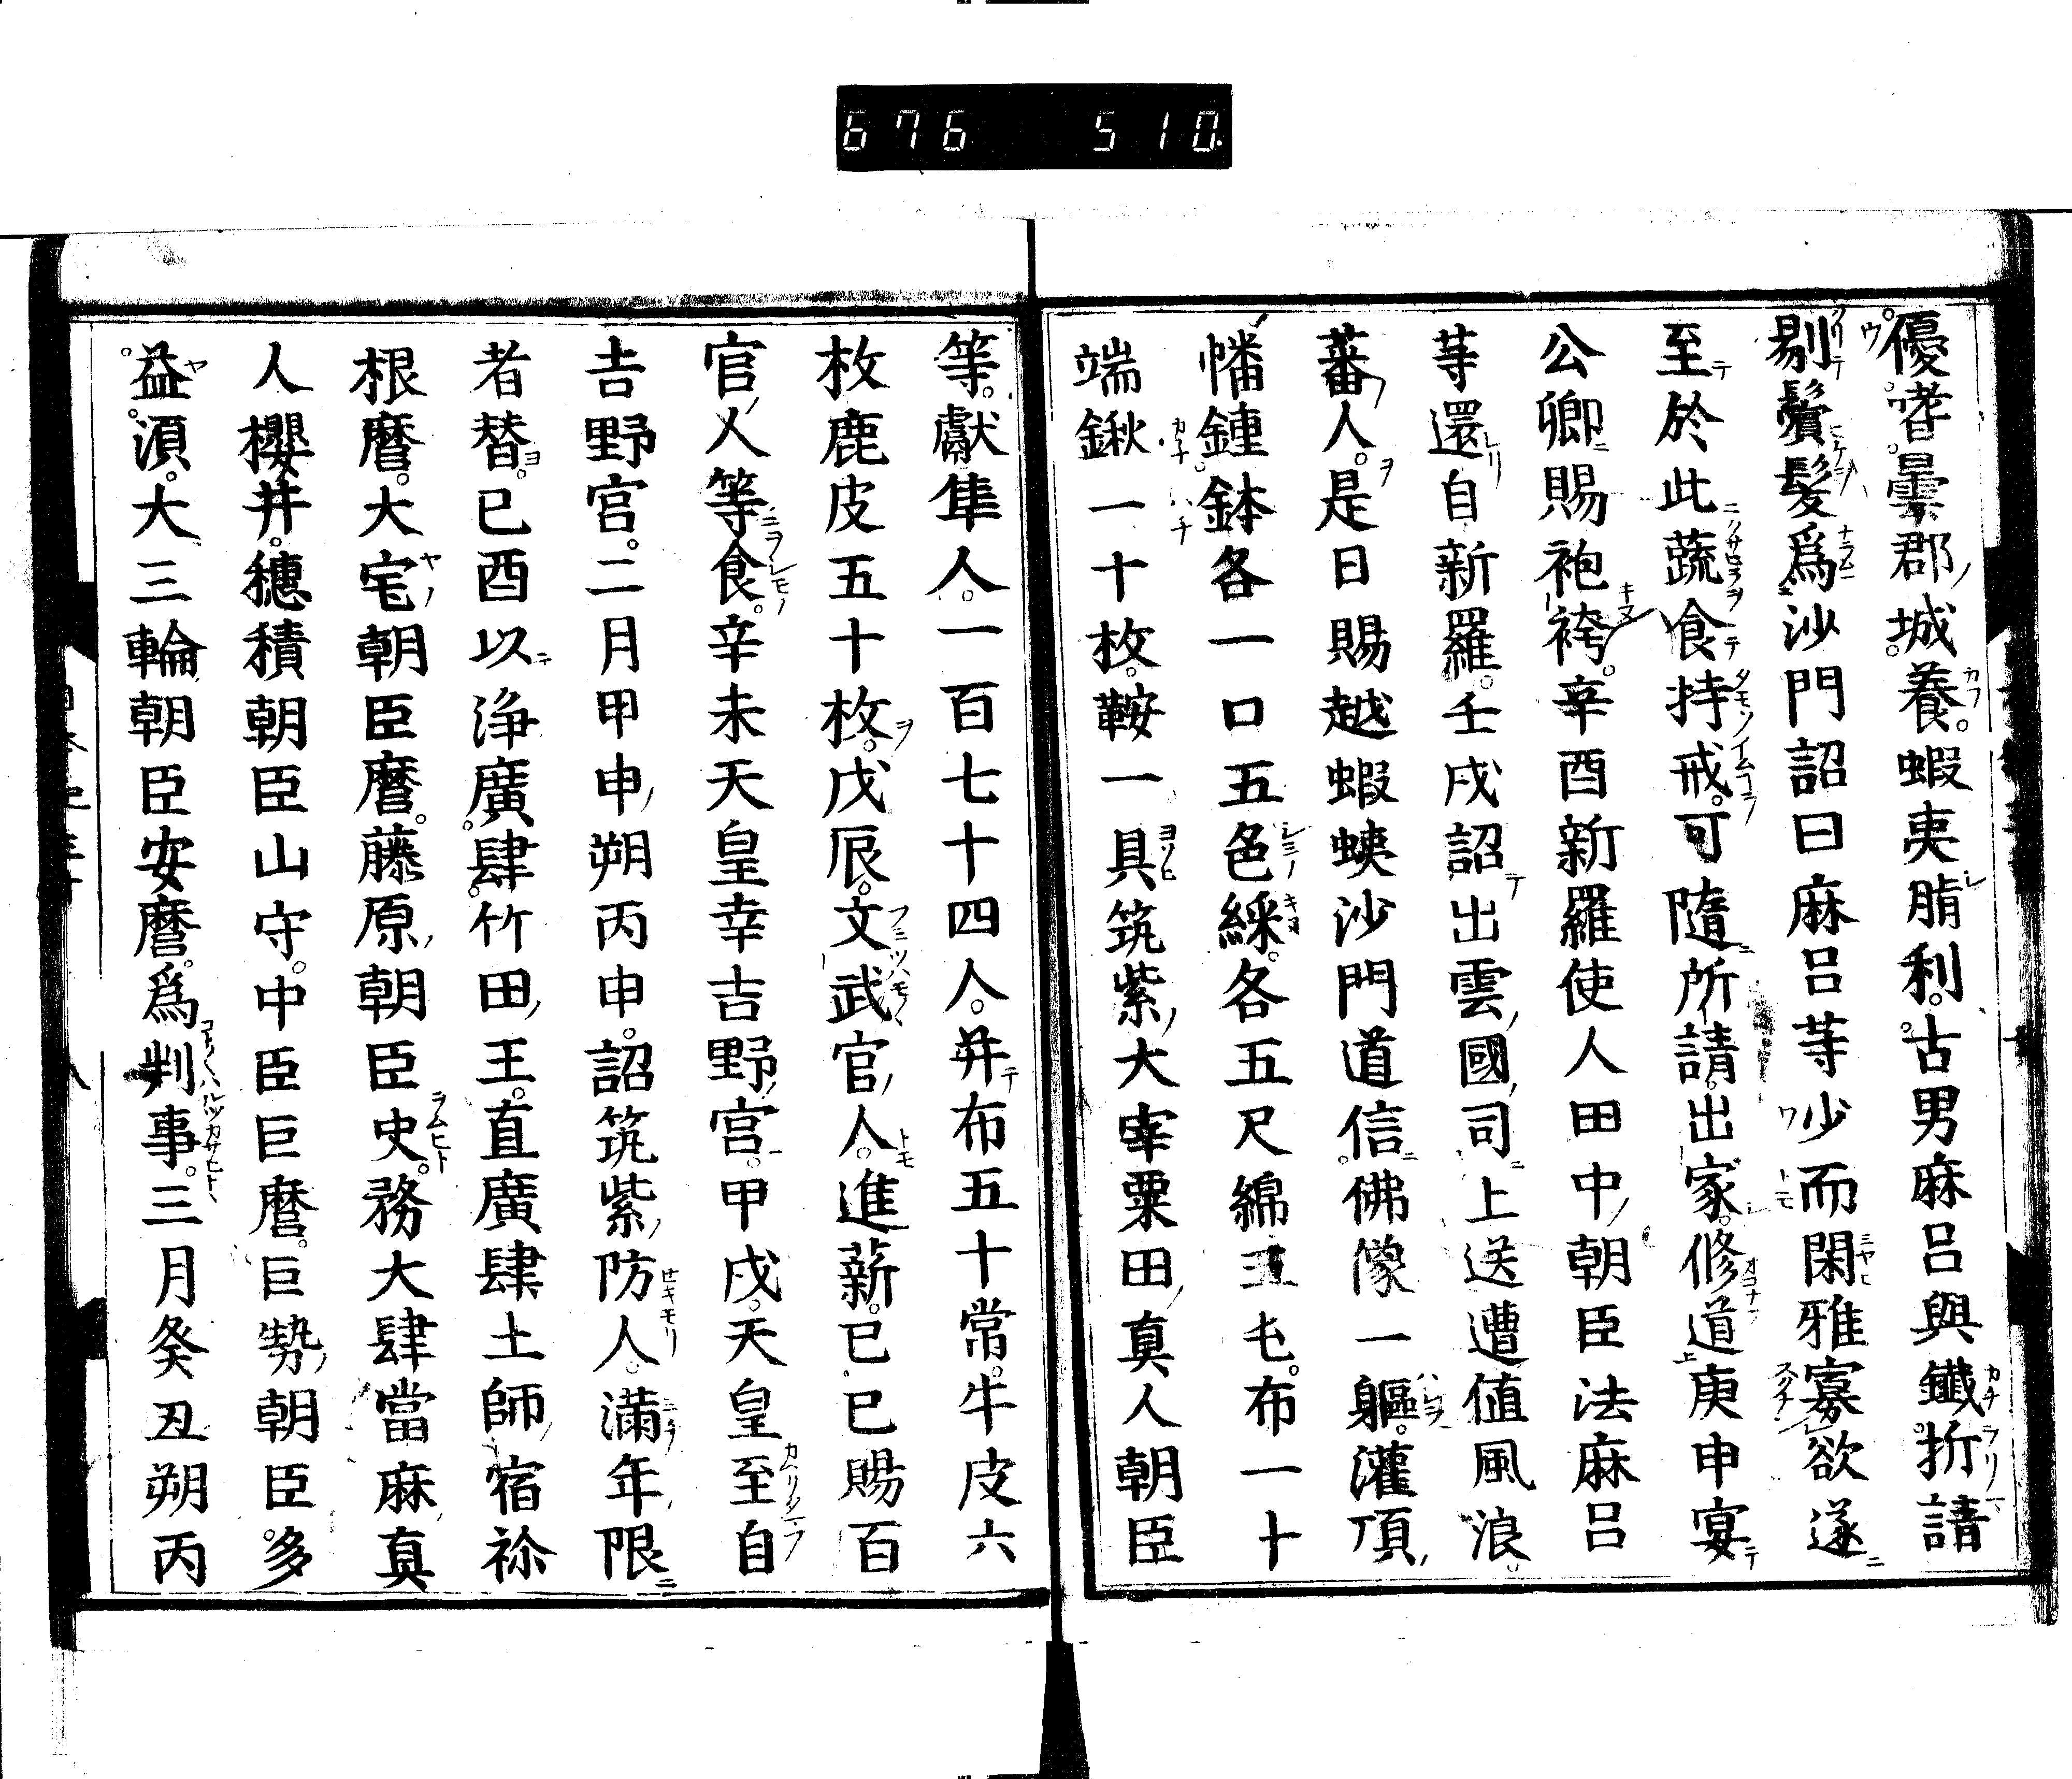 676 510
優㗖曇郡城養蝦夷脂利古男麻呂與鐵折請
剔鬢髮爲沙門詔曰麻呂等少而閑雅寡欲遂
至於此蔬食持戒可隨所請出家修道庚申宴
公卿賜袍袴辛酉新羅使人田中朝臣法麻呂
等還自新羅壬戌詔出雲國司上送遭値風浪
蕃人是日賜越蝦蛦沙門道信佛像一軀灌頂
幡鍾鉢各一口五色綵各五尺綿五屯布一十
端鍬一十枚鞍一具筑紫大宰粟田真人朝臣
等獻隼人一百七十四人幷布五十常牛皮六
枚鹿皮五十枚戊辰文武官人進薪己巳賜百
官人等食辛未天皇幸吉野宮甲戌天皇至自
吉野宮二月甲申朔丙申詔筑紫防人滿年限
者替己酉以浄廣肆竹田王直廣肆土師宿祢
根麿大宅朝臣麿藤原朝臣史務大肆當麻真
人櫻井穗積朝臣山守中臣臣麿巨勢朝臣多
益須大三輪朝臣安麿爲判事三月癸丑朔丙